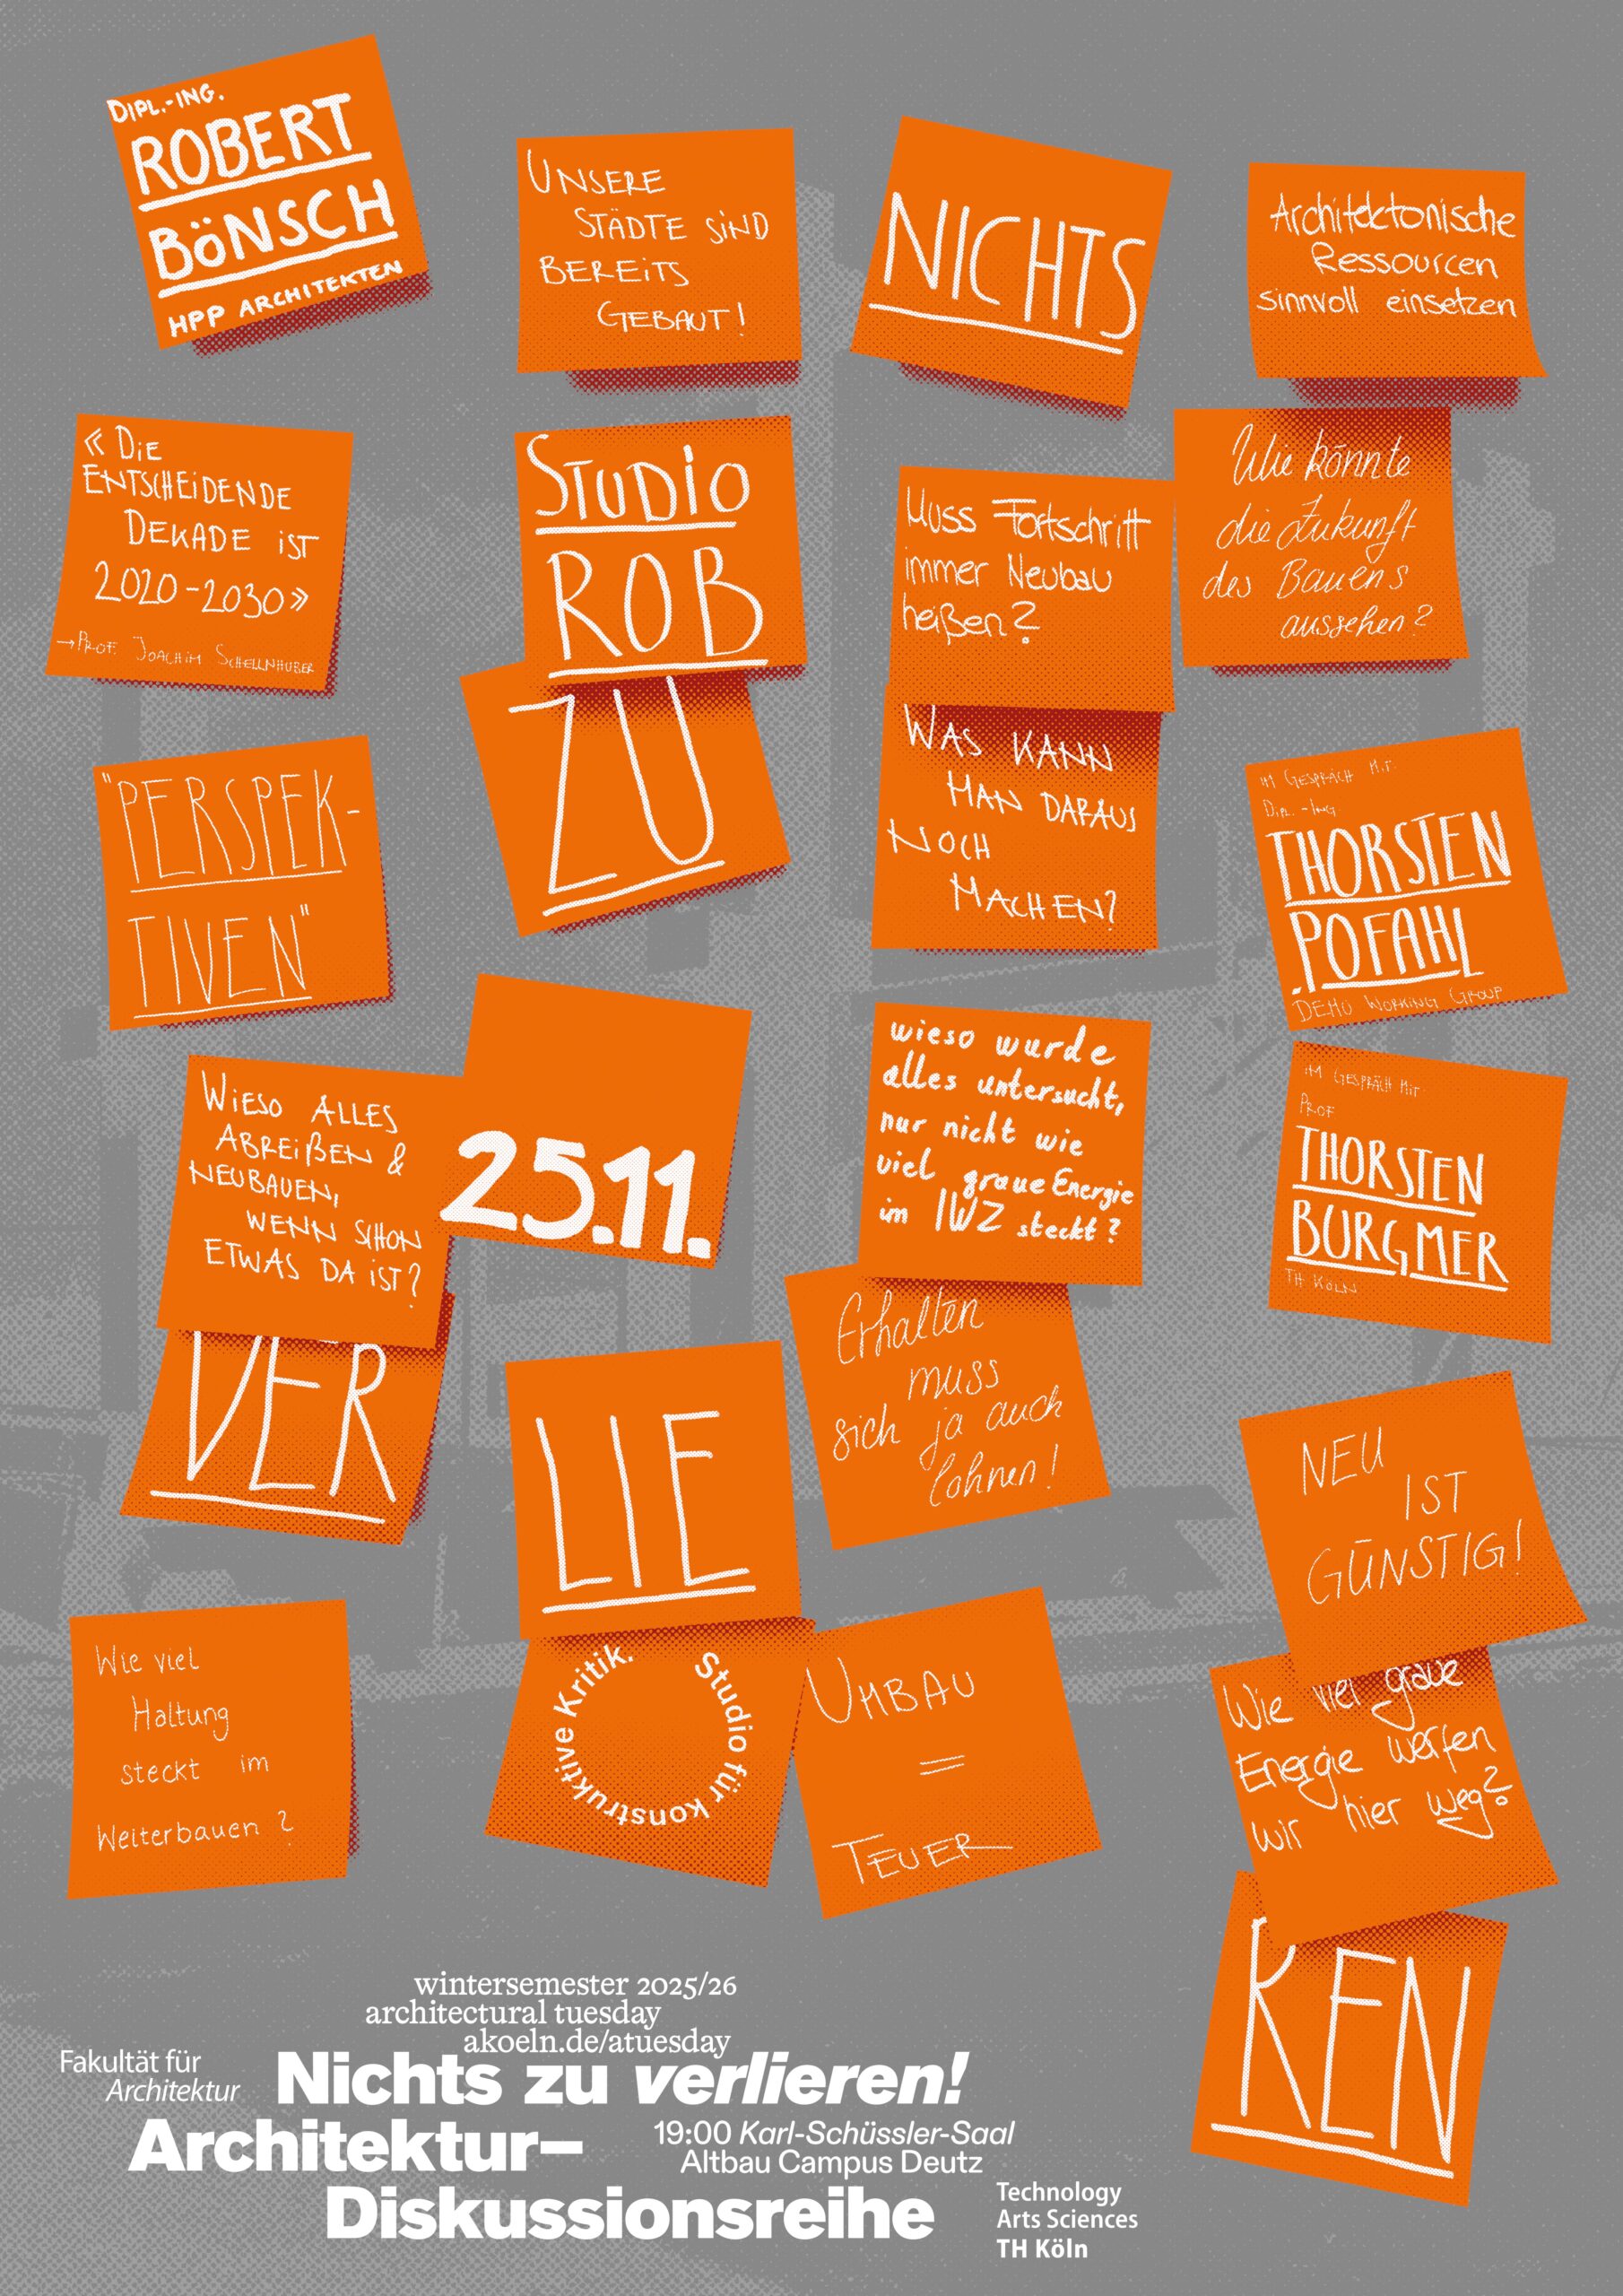 DIPL.-ING.
ROBERT
BÖNSCH
HPP ARCHITEKTEN
UNSERE
STÄDTE SIND
BEREITS
GEBAUT!
NICHTS
Architektonische
Ressourcen
sinnvoll einsetzen
« DIE
ENTSCHEIDENDE
DEKADE IST
2020-2030 »
→ PROF. JOACHIM SCHELLNHUBER
STUDIO
ROB
Muss Fortschritt
immer Neubau
heißen?
Wie könnte
die Zukunft
des Bauens
aussehen?
"PERSPEK-
TIVEN"
ZU
WAS KANN
MAN DARAUS
NOCH
MACHEN?
IM GESPRÄCH MIT
DIPL.-ING
THORSTEN
POFAHL
DEMO WORKING GROUP
WIESO ALLES
ABREIßEN &
NEUBAUEN,
WENN SCHON
ETWAS DA IST?
25.11.
wieso wurde
alles untersucht,
nur nicht wie
viel graue Energie
im IWZ steckt?
IM GESPRÄCH MIT
PROF
THORSTEN
BURGMER
TH KÖLN
VER
LIE
Erhalten
muss
sich ja auch
lohnen!
NEU
IST
GÜNSTIG!
Wie viel
Haltung
steckt im
Weiterbauen?
Studio für konstruktive Kritik.
UMBAU
=
TEUER
Wie viel graue
Energie werfen
wir hier weg?
REN
wintersemester 2025/26
architectural tuesday
akoeln.de/atuesday
Fakultät für
Architektur
Nichts zu verlieren!
Architektur–
Diskussionsreihe
19:00 Karl-Schüssler-Saal
Altbau Campus Deutz
Technology
Arts Sciences
TH Köln